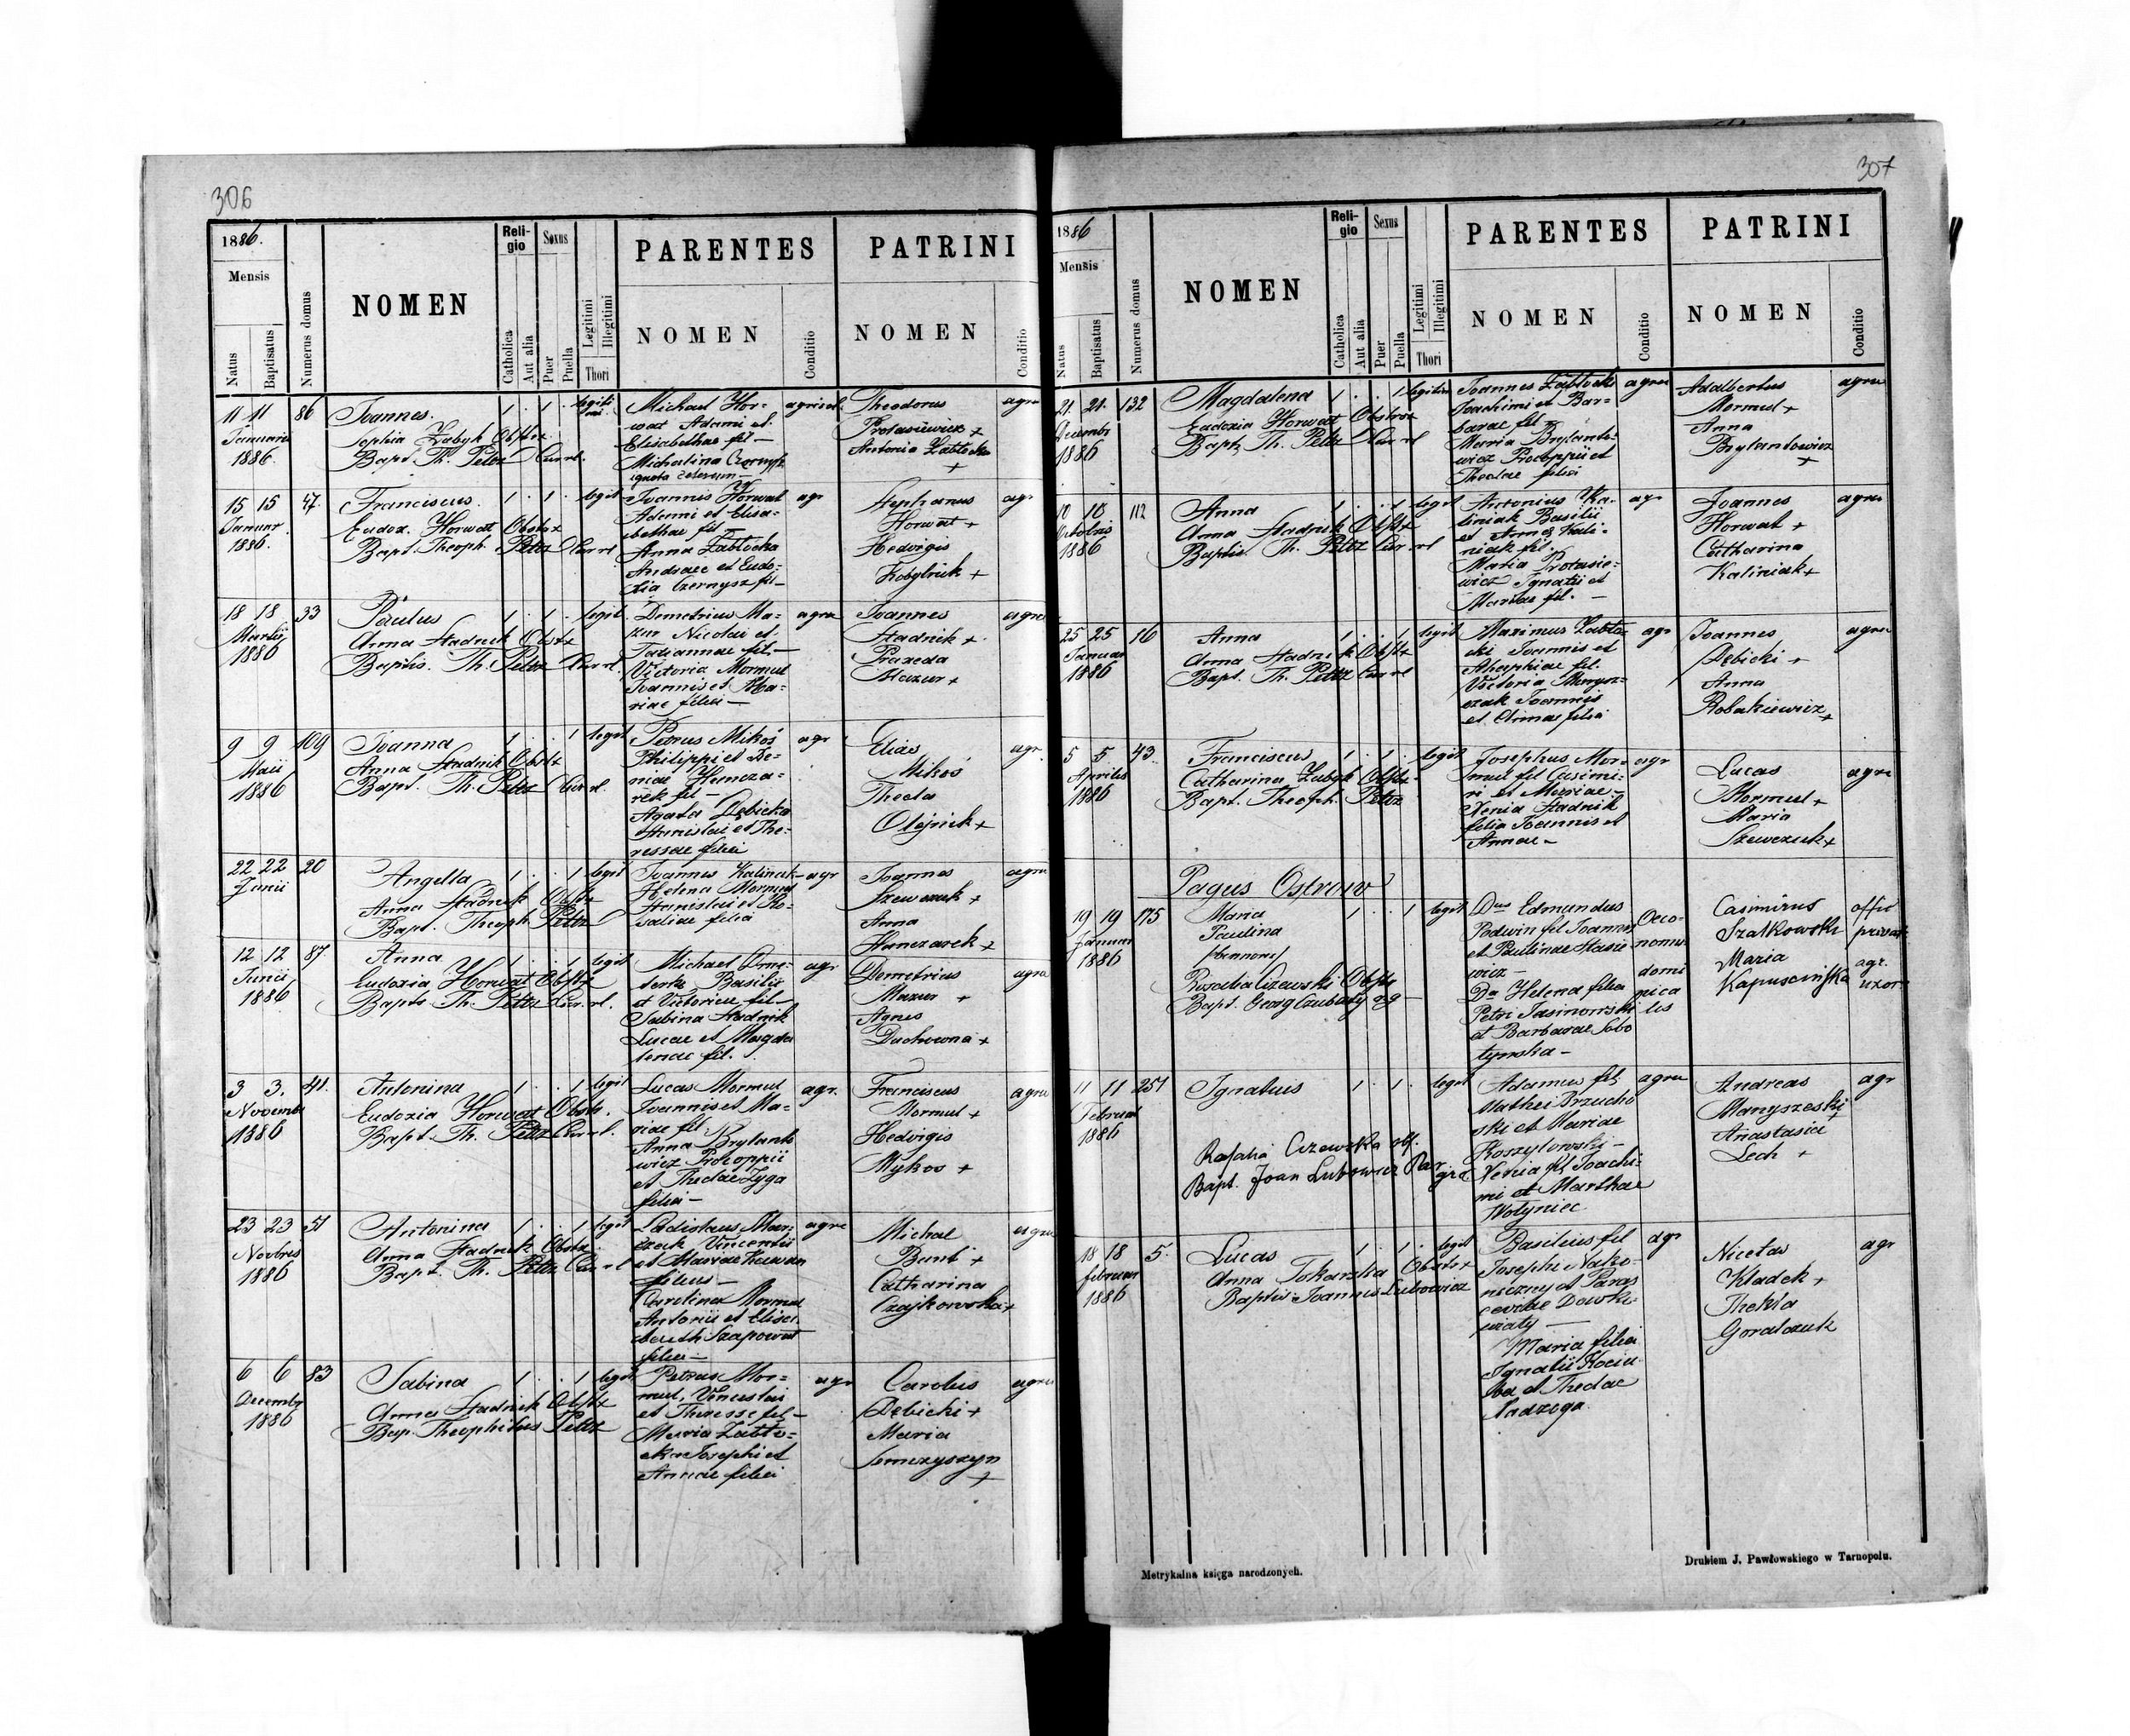 306
1886.
Mensis
Natus
Baptisatus
Numerus domus
NOMEN
Reli-
gio
Catholica
Aut alia
Sexus
Puer
Puella
Legitimi
Illegitimi
Thori
PARENTES
NOMEN
Conditio
PATRINI
NOMEN
Conditio
11 11 86
Januarii
1886.
Joannes.
Sophia Zabyk Obstx
Bapt. Th. Petz Cur. rl.
1 . 1 . legiti
mi.
Michael Hor-
wat Adami et
Elisabethae fil —
Michalina Czernysz
ignota ceterum —
agricol.
Theodorus
Protasiewicz +
Antonia Zabłocka
+
agr
15 15 47.
Januar.
1886.
Franciscus.
Eudox. Horwat Obstx
Bapt. Theoph. Petz Cur rl
1 . 1 . legit
Joannis Horwat
Adami et Elisa-
bethae fil —
Anna Zabłocka
Andreae et Eudo-
xia Czernysz fil —
agr
Stephanus
Horwat +
Hedvigis
Kobylnik +
agr
18 18 33
Martii
1886
Paulus
Anna Stadnik Obstx
Baptis. Th. Petz Cur rl.
1 . 1 . legit.
Demetrius Ma-
zur Nicolai et
Tatiannae fil. —
Victoria Mormul
Joannis et Ma-
riae filia —
agr
Joannes
Stadnik +
Praxeda
Mazur +
agr
9 9 109
Maii
1886
Joanna
Anna Stadnik Obstx
Bapt. Th. Petz Cur. rl.
1 . . 1 legit
Petrus Mikoś
Philippi et Xe-
niae Hancza-
rek fil —
Agata Dębicka
Stanislai et The-
ressae filia
agr
Elias
Mikoś
Thecla
Olejnik +
agr.
22 22 20
Junii
Angella
Anna Stadnik Obstx
Bapt. Theoph. Petz
1 . . 1 legit
Joannes Kaliniak —
Helena Mormul
Stanislai et Ro-
saliae filia
agr
Joannes
Szewczuk +
Anna
Hanczarek +
agr
12 12 87.
Junii
1886
Anna
Eudoxia Horwat Obstx
Bapt. Th. Petz Cur. rl.
1 . . 1 legit
Basilii
et Victoriae fil —
Sabina Stadnik
Lucae et Magda
lenae fil.
agr
Demetrius
Mazur +
Agnes
Duchowna +
agr
3 3. 41.
Novemb
1886
Antonina
Eudoxia Horwat Obstx.
Bapt. Th. Petz Cur. rl.
1 . . 1 legit
Lucas Mormul
Joannis et Ma-
riae fil.
Anna Brylanto
wicz Procoppii
et Theclae Zyga
filia —
agr.
Franciscus
Mormul +
Hedvigis
Mykos +
agr
23 23 51
Novbris
1886
Antonina
Anna Stadnik Obstx
Bapt. Th. Petz Cur rl
1 . . 1 legit
Ladislaus Mar-
czak Vincentii
et Mariae
filius —
Carolina Mormul
Antonii et Elisa-
beth Szapował
filia —
agr
Michal
Bunt +
Catharina
Czajkowska +
agr
6 6 83
Decemb
1886
Sabina
Anna Stadnik Obstx
Bap. Theophilus Petz
1 . . 1 legit
Petrus Mor-
mul, Venceslai
et Theresse fil —
Maria Zabło-
cka Josephi et
Annae filia
agr
Carolus
Dębicki +
Maria
Semczyszyn
+
agr
307
1886
Mensis
Natus
Baptisatus
Numerus domus
NOMEN
Reli-
gio
Catholica
Aut alia
Sexus
Puer
Puella
Legitimi
Illegitimi
Thori
PARENTES
NOMEN
Conditio
PATRINI
NOMEN
Conditio
21. 21. 132
Decembr
1886
Magdalena
Eudoxia Horwat Obstrx
Bapt. Th. Petz Cur rl
1 . . 1 legitim
Joannes Zabłocki
Joachimi et Bar-
barae fil —
Maria Brylanto-
wicz Procoppii et
Theclae filia
agr
Adalbertus
Mormul +
Anna
Brylantowicz
+
agr
10 10. 112
Octobris
1886
Anna
Anna Stadnik Obstx
Baptis. Th. Petz Cur rl
1 . . 1 legit
Antonius Ka-
liniak Basilii
et Anna Kali-
niak fil.
Maria Protasie-
wicz Ignatii et
Mariae fil. —
agr
Joannes
Horwat +
Catharina
Kaliniak +
agr
25 25 16
Januar
1886
Anna
Anna Stadnik Obstx
Bapt. Th. Petz Cur rl
1 . . 1 legit
Maximus Zabło-
cki Joannis et
fil.
Victoria
czak Joannis
et Annae filia
agr
Joannes
Dębicki +
Anna
Robakiewicz
+
agr
5 5 43.
Aprilis
1886
Franciscus
Catharina Zabyk Obstx
Bapt. Theoph. Petz
1 . 1 . legit
Josephus Mor-
mul fil Casimi-
ri et Mariae —
Xenia Stadnik
filia Joannis et
Annae —
agr
Lucas
Mormul +
Maria
Szewczuk +
agr
Pagus Ostrow
19 19 175
Januar
1886
Maria
Paulina
Rosalia Cizewski Obstx
Bapt. Georg Czubaty gg —
1 . . 1 legit
Dus Edmundus
Podwin fil Joannis
et Paulinae Stasie
wicz —
Da Helena filia
Petri Jasinowski
et Barbarae Sobo
tynska —
Oeco-
nomus
domi
nica
lis
Casimirus
Szatkowski
Maria
Kapuscińska
offic
privat
agr.
uxor
11 11 251
Februar
1886
Ignatius
Rosalia Cizewska obs.
Bapt. Joan Lubowicz Par
gra
1 . 1 . legit
Adamus fil
Mathei Brzucho
ski et Mariae
Koszylowski —
Xenia fil Joachi-
mi et Marthae
Wołyniec
agr
Andreas
Manyszeski
Anastasia
Lech +
agr
18 18 5.
februar
1886
Lucas
Anna Tokarska Obstx
Baptis Joannes Lubowicz
1 . 1 . legit
Basilius fil
Josephi Nako-
nieczny et Paras
cevae
Maria filia
Ignatii Kociu
ba et Theclae
Nadzoga
agr
Nicetas
Kladek +
Thekla
Goralczuk
agr
Metrykalna księga narodzonych.
Drukiem J. Pawłowskiego w Tarnopolu.